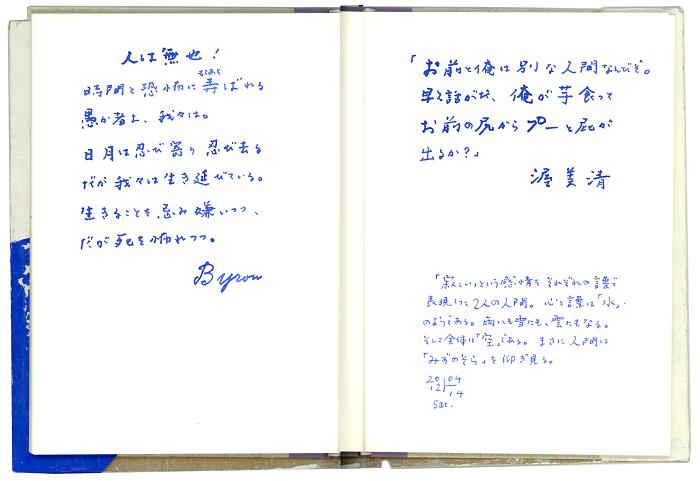 人は無也!
もてあそ
時間と恐怖に弄ばれる
愚か者よ、我々は。
日月は忍び寄り 忍び去る
だが我々は生き延びている。
生きることを忌み嫌いつつ、
だが死を怖れつつ。
Byron
「お前と俺は別な人間なんだぞ。
早え話がだ、俺が芋食って
お前の尻からプーと屁が
出るか?」
渥美清
「寂しい」という感情をそれぞれの言葉で
表現した2人の人間。心と言葉は「水」
のようである。雨にも雪にも、雲にもなる。
そして全体は「空」である。まさに人間は
「みずのそら」を仰ぎ見る。
20 04
12 14
Sat.